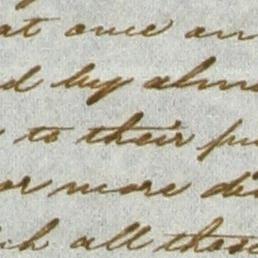 at once an
by alm
to their pu
or more di
ch all those